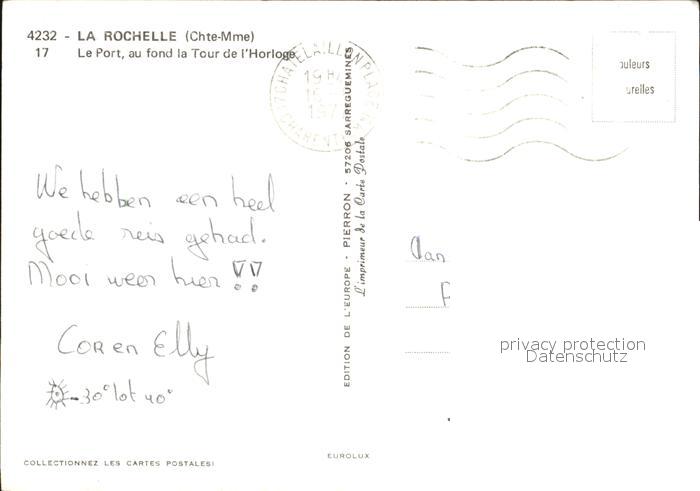 4232 - LA ROCHELLE (Chte-Mme)
17 Le Port, au fond la Tour de l'Horloge
17 CHATELAILLON PLAGE
CHARENTE
uleurs
urelles
We hebben een heel
goede reis gehad.
Mooi weer hier !!
Cor en Elly
-30° tot 40°
EDITION DE L'EUROPE · PIERRON · 57206 SARREGUEMINES
L'imprimeur de la Carte Postale
Aan
privacy protection
Datenschutz
EUROLUX
COLLECTIONNEZ LES CARTES POSTALES!